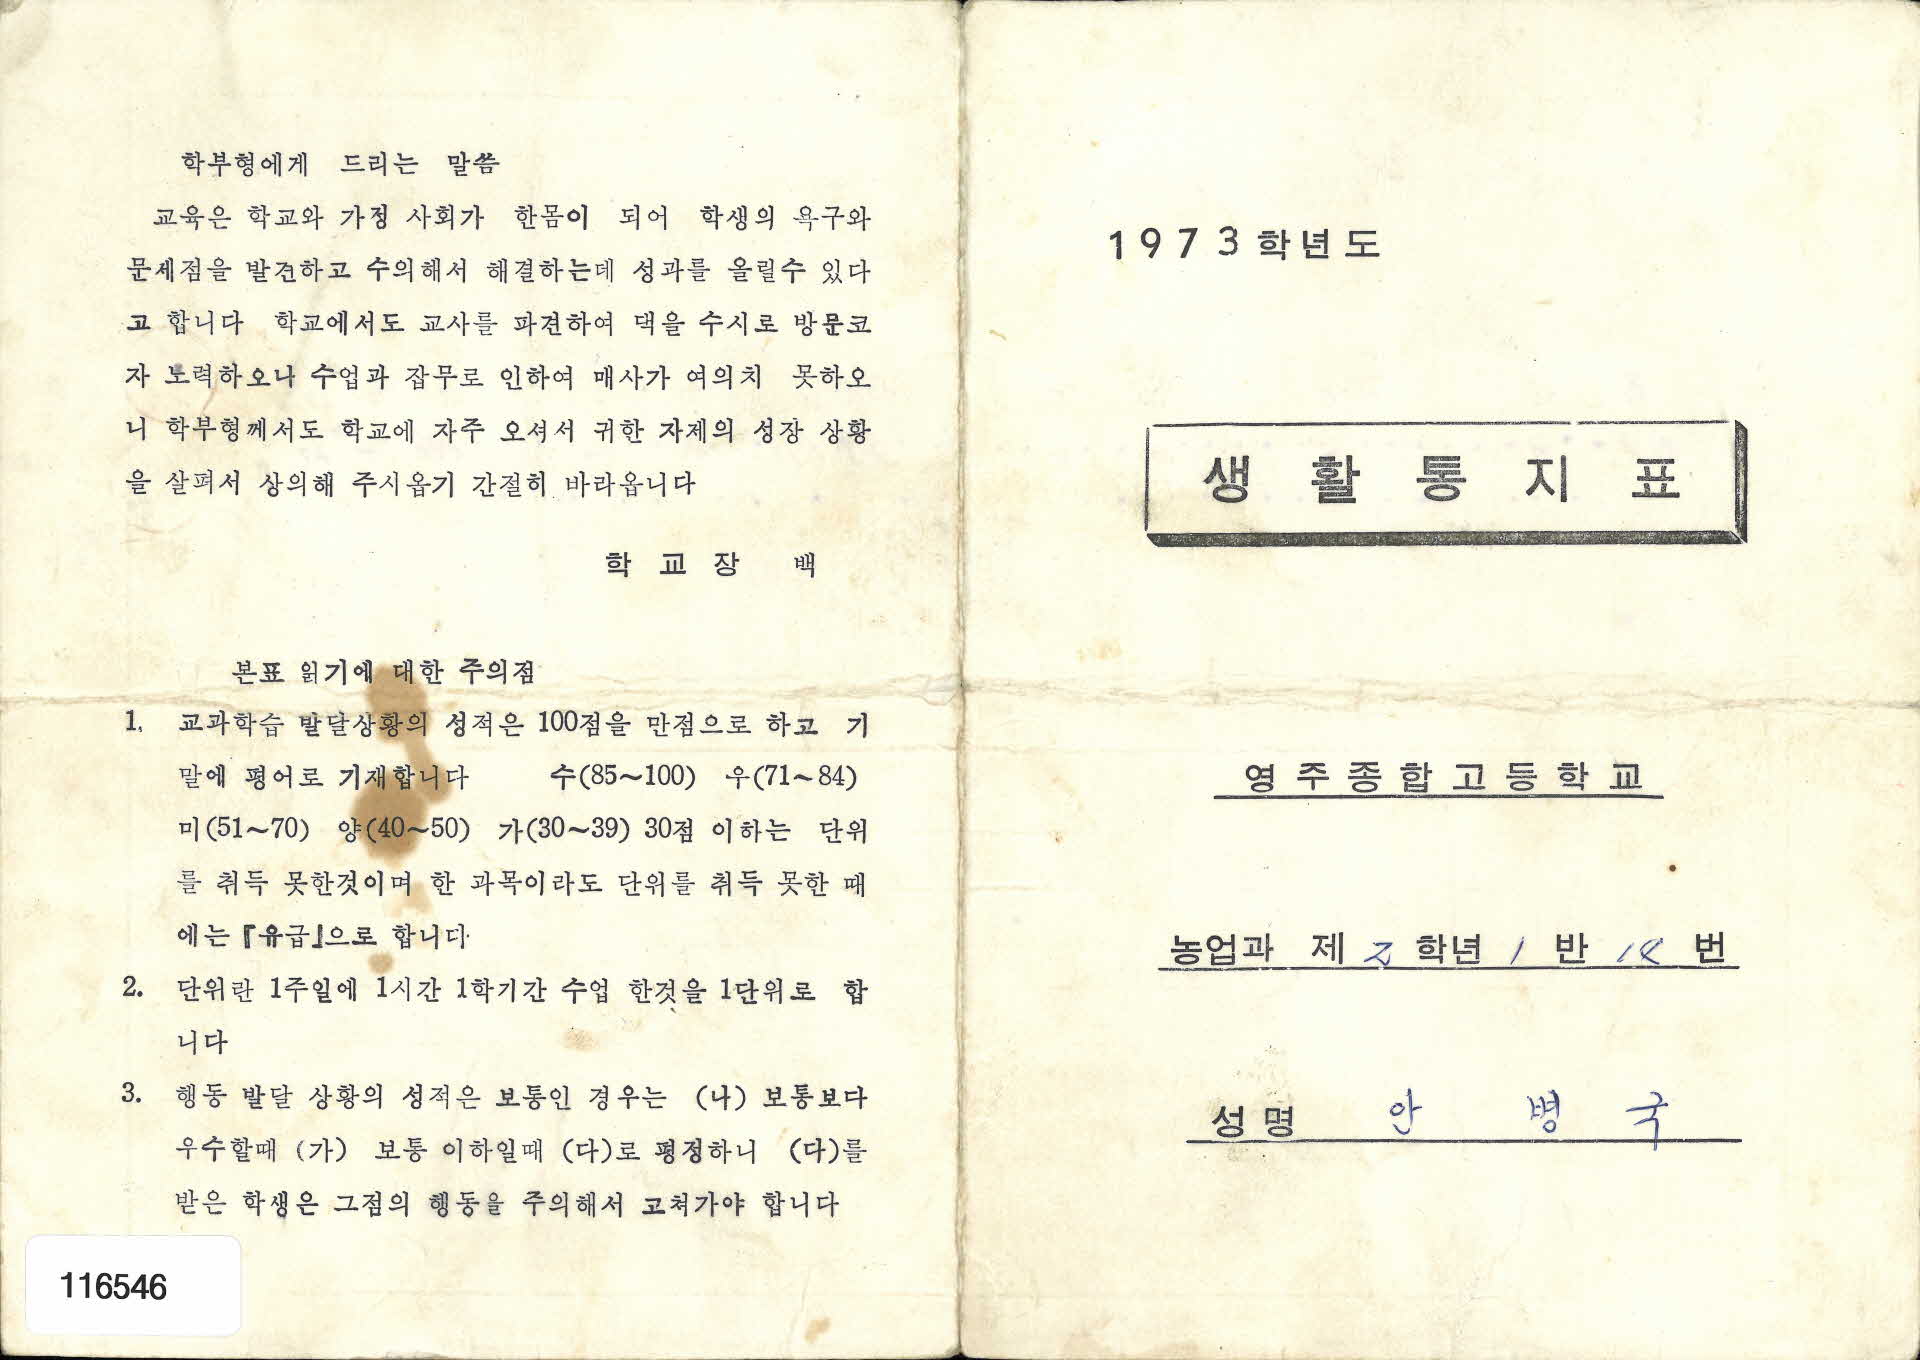 학부형에게 드리는 말씀
교육은 학교와 가정 사회가 한몸이 되어 학생의 욕구와
문제점을 발견하고 수의해서 해결하는데 성과를 올릴수 있다
고 합니다 학교에서도 교사를 파견하여 댁을 수시로 방문코
자 노력하오나 수업과 잡무로 인하여 매사가 여의치 못하오
니 학부형께서도 학교에 자주 오셔서 귀한 자제의 성장 상황
을 살펴서 상의해 주시옵기 간절히 바라옵니다
학 교 장 백
본표 읽기에 대한 주의점
1. 교과학습 발달상황의 성적은 100점을 만점으로 하고 기
말에 평어로 기재합니다 수(85~100) 우(71~84)
미(51~70) 양(40~50) 가(30~39) 30점 이하는 단위
를 취득 못한것이며 한 과목이라도 단위를 취득 못한 때
에는 『유급』으로 합니다
2. 단위란 1주일에 1시간 1학기간 수업 한것을 1단위로 합
니다
3. 행동 발달 상황의 성적은 보통인 경우는 (나) 보통보다
우수할때 (가) 보통 이하일때 (다)로 평정하니 (다)를
받은 학생은 그점의 행동을 주의해서 고쳐가야 합니다
116546
1973학년도
생 활 통 지 표
영주종합고등학교
농업과 제 2 학년 1 반 번
성명 안 병 국